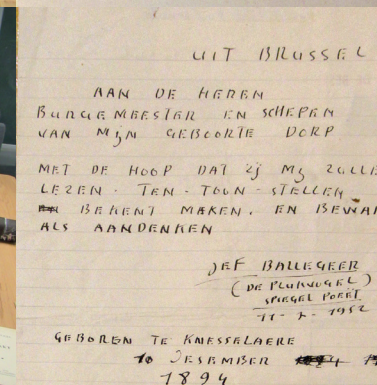 UIT BRUSSEL
AAN DE HEREN
BURGEMEESTER EN SCHEPEN
VAN MIJN GEBOORTE DORP
MET DE HOOP DAT ZIJ MIJ ZULLE
LEZEN - TEN - TOON - STELLEN
BEKENT MAKEN. EN BEWAR
ALS AANDENKEN
JEF BALLEGEER
(DE PLUKVOGEL)
SPIEGEL POEËT
11-7-1952
GEBOREN TE KNESSELAERE
10 DESEMBER
1894